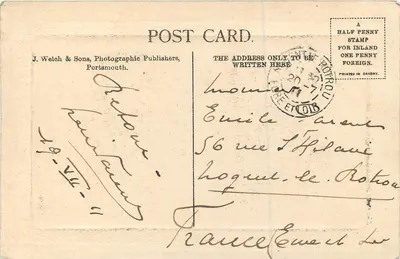 POST CARD.
A
HALF PENNY
STAMP
FOR INLAND
ONE PENNY
FOREIGN.
PRINTED IN SAXONY.
J. Welch & Sons, Photographic Publishers,
Portsmouth.
THE ADDRESS ONLY TO BE
WRITTEN HERE
ROTROU
EURE ET LOIR
Retour -
19-VII-11
Monsieur
Emile Parent
56 rue St Hilaire
Nogent-le-Rotrou
France Eure et Loir